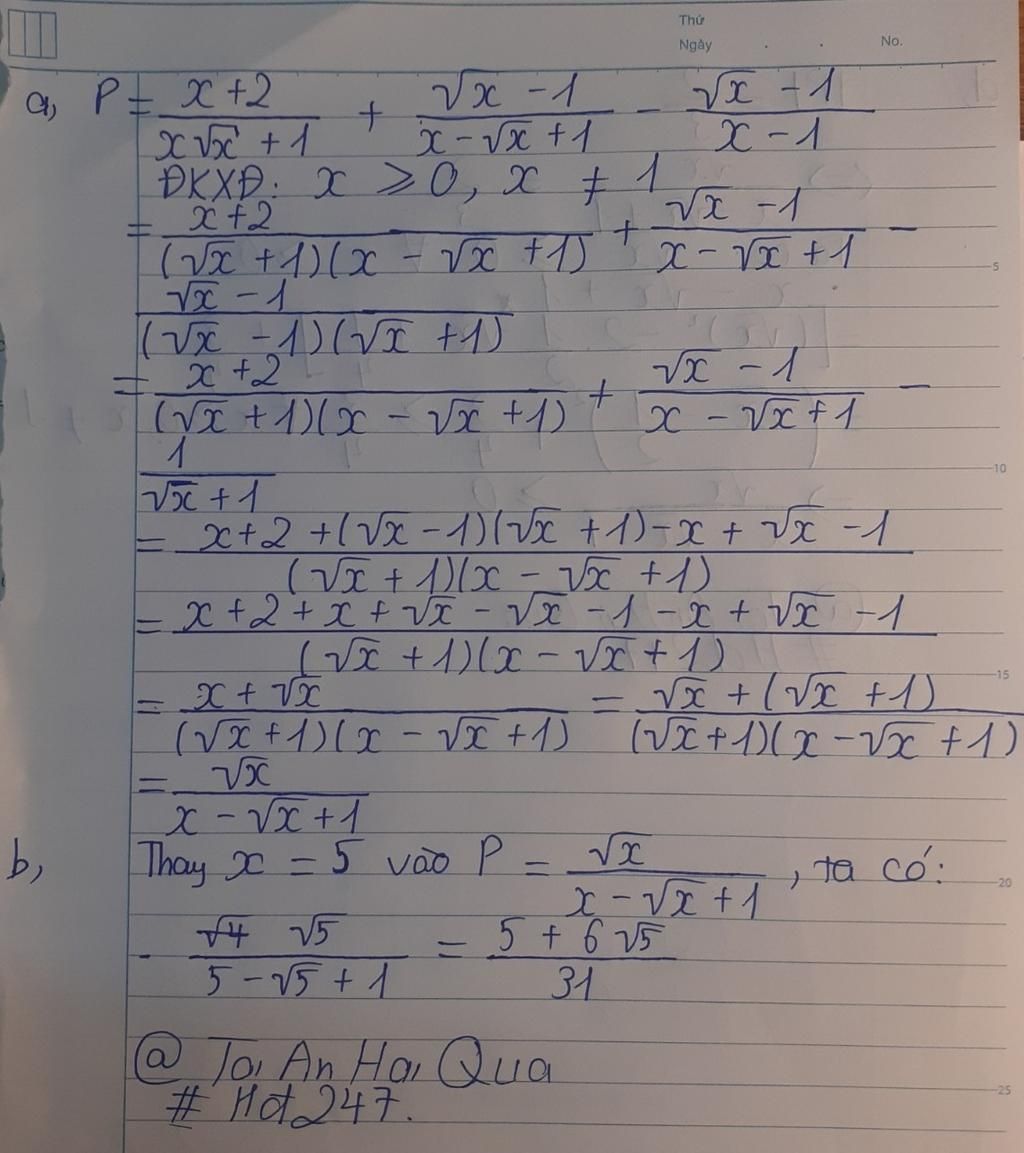 Thứ
Ngày . . No.
a, P = \frac{x+2}{x\sqrt{x}+1} + \frac{\sqrt{x}-1}{x-\sqrt{x}+1} - \frac{\sqrt{x}-1}{x-1}
ĐKXĐ: x ⩾ 0, x ≠ 1
= \frac{x+2}{(\sqrt{x}+1)(x-\sqrt{x}+1)} + \frac{\sqrt{x}-1}{x-\sqrt{x}+1} -
5
\frac{\sqrt{x}-1}{(\sqrt{x}-1)(\sqrt{x}+1)}
= \frac{x+2}{(\sqrt{x}+1)(x-\sqrt{x}+1)} + \frac{\sqrt{x}-1}{x-\sqrt{x}+1} -
\frac{1}{\sqrt{x}+1}
10
= \frac{x+2+(\sqrt{x}-1)(\sqrt{x}+1)-x+\sqrt{x}-1}{(\sqrt{x}+1)(x-\sqrt{x}+1)}
= \frac{x+2+x+\sqrt{x}-\sqrt{x}-1-x+\sqrt{x}-1}{(\sqrt{x}+1)(x-\sqrt{x}+1)}
15
= \frac{x+\sqrt{x}}{(\sqrt{x}+1)(x-\sqrt{x}+1)} = \frac{\sqrt{x}+(\sqrt{x}+1)}{(\sqrt{x}+1)(x-\sqrt{x}+1)}
= \frac{\sqrt{x}}{x-\sqrt{x}+1}
b, Thay x = 5 vào P = \frac{\sqrt{x}}{x-\sqrt{x}+1}, ta có:
20
- \frac{\sqrt{5}}{5-\sqrt{5}+1} = \frac{5+6\sqrt{5}}{31}
@ Toi An Hoi Qua
# Hot247.
25